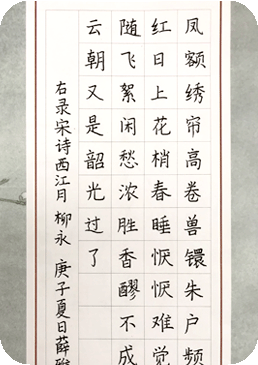 凤额绣帘高卷兽镮朱户频
红日上花梢春睡恹恹难觉
随飞絮闲愁浓胜香醪不成
云朝又是韶光过了
右录宋诗西江月 柳永 庚子夏日薛